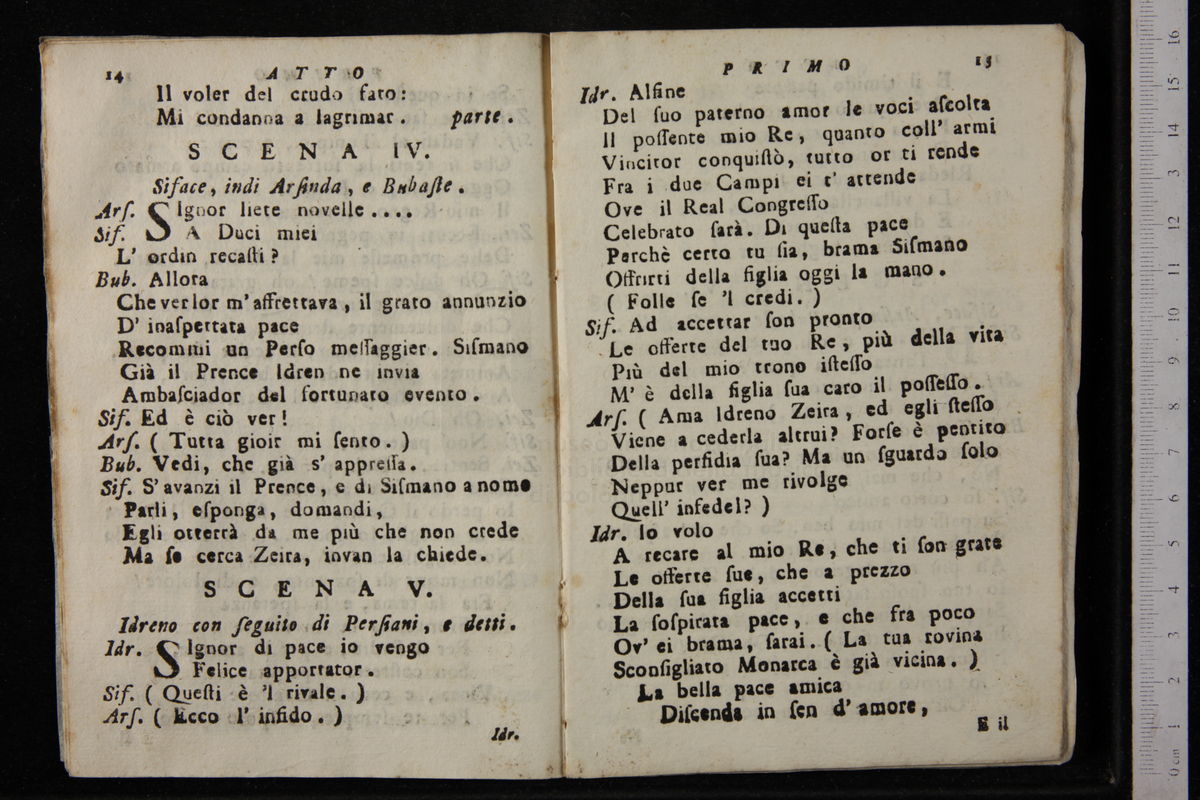 14 ATTO
Il voler del crudo fato:
Mi condanna a lagrimar. parte.
SCENA IV.
Siface, indi Arſinda, e Bubaſte.
Arſ. SIgnor liete novelle....
Sif. A Duci miei
L' ordin recaſti?
Bub. Allora
Che ver lor m' affrettava, il grato annunzio
D' inaſpettata pace
Recommi un Perſo meſſaggier. Siſmano
Già il Prence Idren ne invia
Ambaſciador del fortunato evento.
Sif. Ed è ciò ver!
Arſ. (Tutta gioir mi ſento.)
Bub. Vedi, che già s' appreſſa.
Sif. S' avanzi il Prence, e di Siſmano a nome
Parli, eſponga, domandi,
Egli otterrà da me più che non crede
Ma ſe cerca Zeira, invan la chiede.
SCENA V.
Idreno con ſeguito di Perſiani, e detti.
Idr. SIgnor di pace io vengo
Felice apportator.
Sif. (Queſti è 'l rivale.)
Arſ. (Ecco l' infido.)
Idr.
PRIMO 15
Idr. Alfine
Del ſuo paterno amor le voci aſcolta
Il poſſente mio Re, quanto coll' armi
Vincitor conquiſtò, tutto or ti rende
Fra i due Campi ei t' attende
Ove il Real Congreſſo
Celebrato ſarà. Di queſta pace
Perchè certo tu ſia, brama Siſmano
Offrirti della figlia oggi la mano.
(Folle ſe 'l credi.)
Sif. Ad accettar ſon pronto
Le offerte del tuo Re, più della vita
Più del mio trono iſteſſo
M' è della figlia ſua caro il poſſeſſo.
Arſ. (Ama Idreno Zeira, ed egli ſteſſo
Viene a cederla altrui? Forſe è pentito
Della perfidia ſua? Ma un ſguardo ſolo
Neppur ver me rivolge
Quell' infedel?)
Idr. Io volo
A recare al mio Re, che ti ſon grate
Le offerte ſue, che a prezzo
Della ſua figlia accetti
La ſoſpirata pace, e che fra poco
Ov' ei brama, ſarai. (La tua rovina
Sconſigliato Monarca è già vicina.)
La bella pace amica
Diſcenda in ſen d' amore,
E il